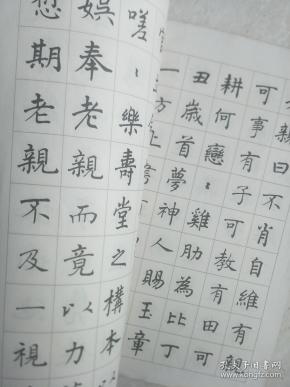 親曰不肖自維有親
可事有子可教有田可
耕何戀〻雞肋為比丁
丑歲首夢神人賜玉章
一方
嗟〻樂壽堂之構本
娛奉老親而竟以力
期老親不及一視